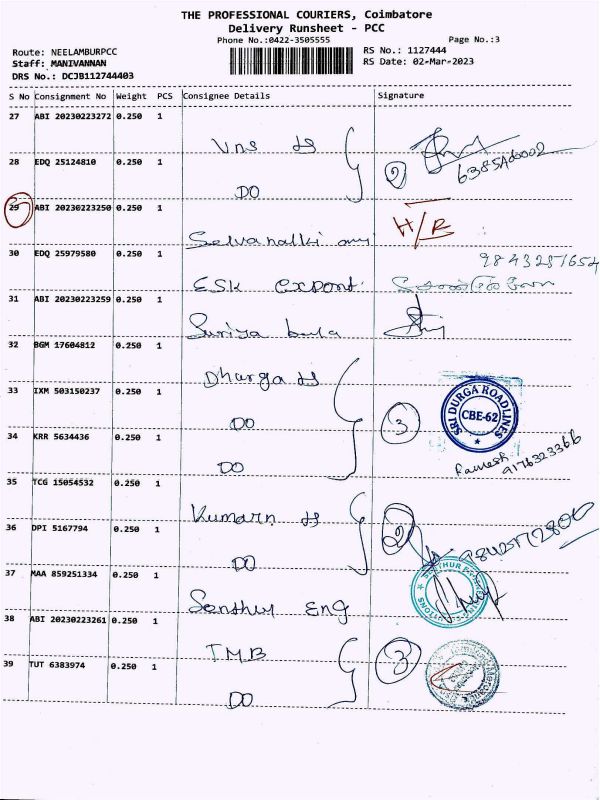 THE PROFESSIONAL COURIERS, Coimbatore
Delivery Runsheet - PCC
Phone No.:0422-3505555
Page No.:3
Route: NEELAMBURPCC
RS No.: 1127444
Staff: MANIVANNAN
RS Date: 02-Mar-2023
DRS No.: DCJB112744403
S No Consignment No Weight PCS Consignee Details Signature
27 ABI 20230223272 0.250 1
Vns
28 EDQ 25124810 0.250 1 2
DO
29 ABI 20230223250 0.250 1 H/R
30 EDQ 25979580 0.250 1
ESK Export
31 ABI 20230223259 0.250 1
Suriya bala
32 BGM 17604812 0.250 1
Dhurga
33 IXM 503150237 0.250 1
DO 3 SRI DURGA ROADLINES CBE-62
34 KRR 5634436 0.250 1
DO 9176323366
35 TCG 15054532 0.250 1
Kumarn
36 DPI 5167794 0.250 1 2
DO
37 MAA 859251334 0.250 1
Senthur Eng
38 ABI 20230223261 0.250 1
TMB
39 TUT 6383974 0.250 1
DO